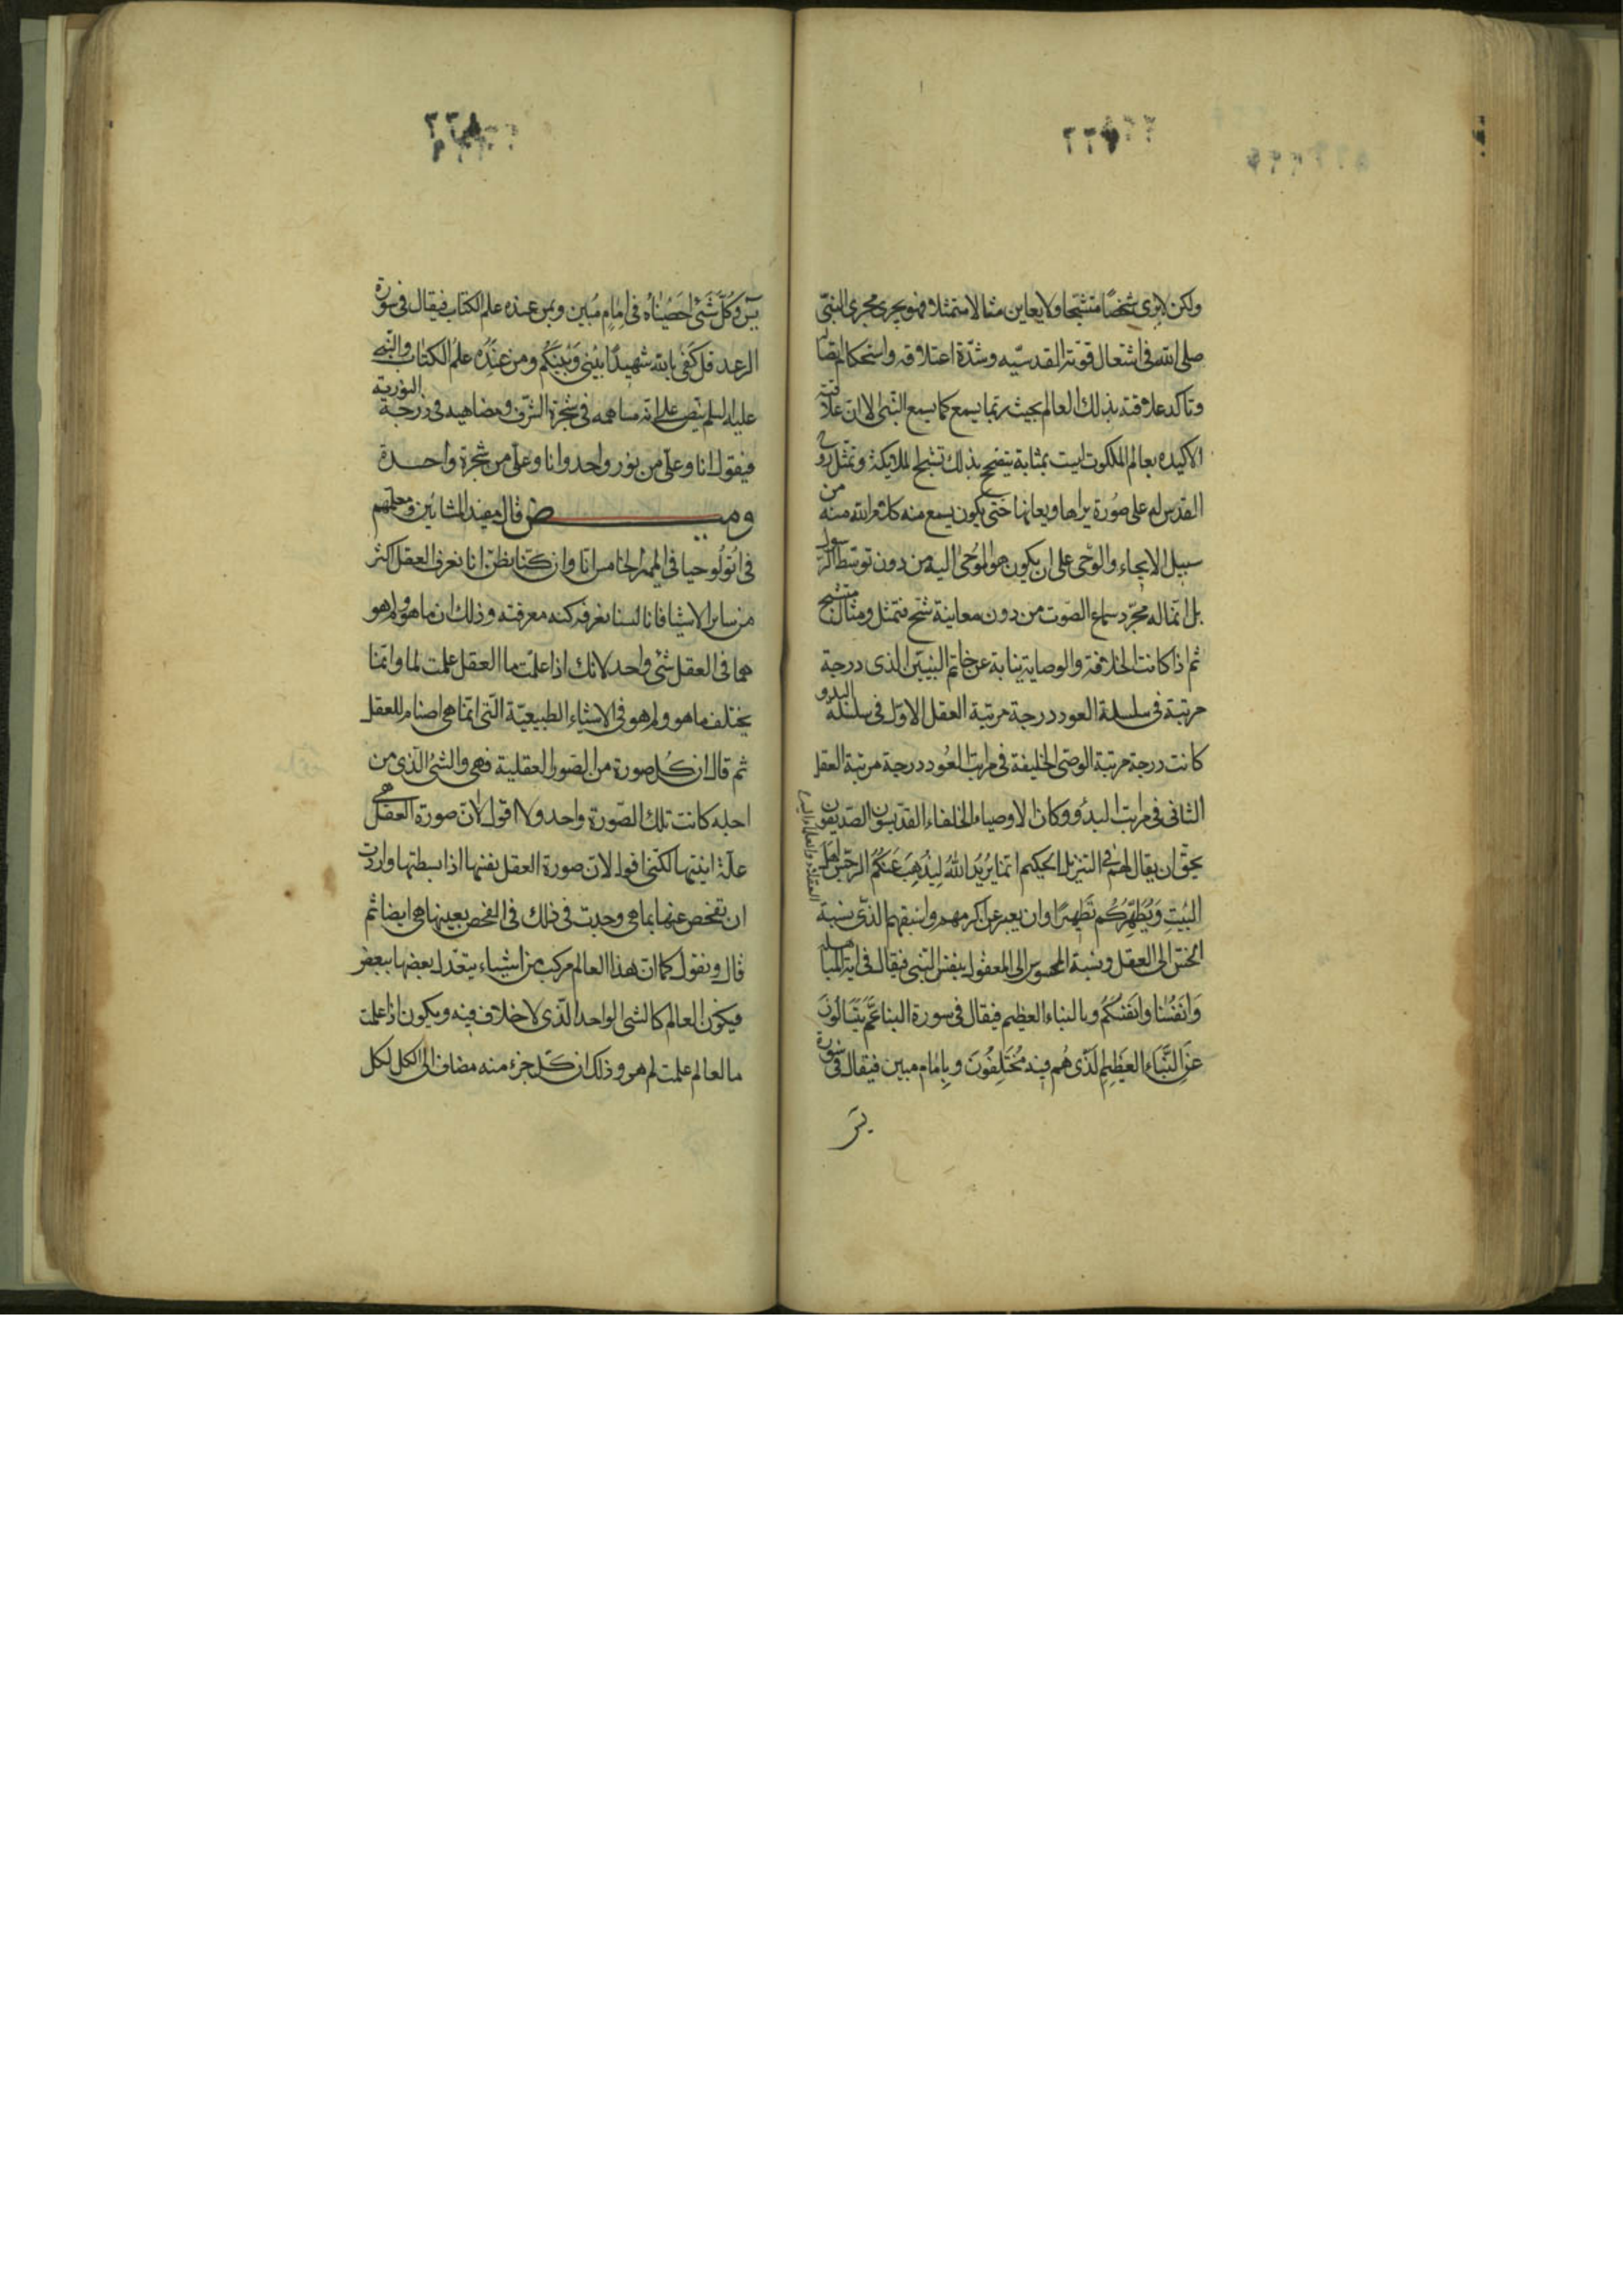 ٢٦٧
ولكن لا يرى شخصا متشبحا ولا يعاين مثالا متمثلا فهو يجرى مجرى النبى
صلى الله فى اشتعال قوته القدسيه وشدة اعتلاقه واستحكام اتصا
وتاكد علاقته بذلك العالم بحيث ربما يسمع كما يسمع النبى الا ان علاقته
الاكيده بعالم الملكوت ليست بمثابة يتصحح بذلك تشبح الملايكة وتمثل روح
القدس له على صورة يراها ويعاينها حتى يكون يسمع منه كلام الله منه من
سبيل الايحاء والوحى على ان يكون هو الموحى اليه من دون توسط الرسول
بل انما له مجرد سماع الصوت من دون معاينة شبح متمثل ومثال متشبح
ثم اذا كانت الخلافة والوصاية نيابة عن خاتم النبيين الذى درجة
مرتبة فى سلسلة العود درجة مرتبة العقل الاول فى سلسلة البدو
كانت درجة مرتبة الوصى الخليفة فى مراتب العود درجة مرتبة العقل
الثانى فى مراتب البدؤ وكان الاوصياء الخلفاء القديسون الصديقون
يحق ان يقال لهم فى التنزيل الحكيم انما يريد الله ليذهب عنكم الرجس اهل
البيت ويطهركم تطهيرا وان يعبر عن اكرمهم واسبقهم الذى نسبة
الحس الى العقل ونسبة المحسوس الى المعقول بنفس النبى فيقال فى اية المباهلة
وانفسنا وانفسكم وبالنباء العظيم فيقال فى سورة النبا عم يتسالون
عن النباء العظيم الذى هم فيه مختلفون وبامام مبين فيقال فى سورة
يس
٢٦٨
يس وكل شئ احصيناه فى امام مبين وبمن عنده علم الكتاب فيقال فى سورة
الرعد قل كفى بالله شهيدا بينى وبينكم ومن عنده علم الكتاب والنبى
عليه السلم ينص على انه مساهمه فى شجرة الشرف ومضاهيه فى درجة النورية
فيقول انا وعلى من نور واحد وانا وعلى من شجرة واحدة
ومـيـض قال مفيد المشائين ومعلمهم
فى اثولوجيا فى الميمر الخامس انا وان كنا نظن انا نعرف العقل اكثر
من ساير الاشيا فانا لسنا نعرفه كنه معرفته وذلك ان ما هو ولم هو
هما فى العقل شئ واحد لانك اذا علمت ما العقل علمت لما وانما
يختلف ما هو ولم هو فى الاشياء الطبيعية التى انما هى اصنام للعقل
ثم قال ان كل صورة من الصور العقلية فهى والشئ الذى من
اجله كانت تلك الصورة واحد ولا اقول لان صورة العقل هى
علة اينيتها لكننى اقول لان صورة العقل نفسها اذا بسطتها واردت
ان تفحص عنها بما هى وجدت فى ذلك فى الفحص بعينها هى ايضا ثم
قال ونقول كما ان هذا العالم مركب من اشياء يتحد بعضها ببعض
فيكون العالم كالشئ الواحد الذى لا خلاف فيه ويكون اذا علمت
ما لعالم علمت لم هو وذلك ان كل جزء منه مضاف الى الكل لكل